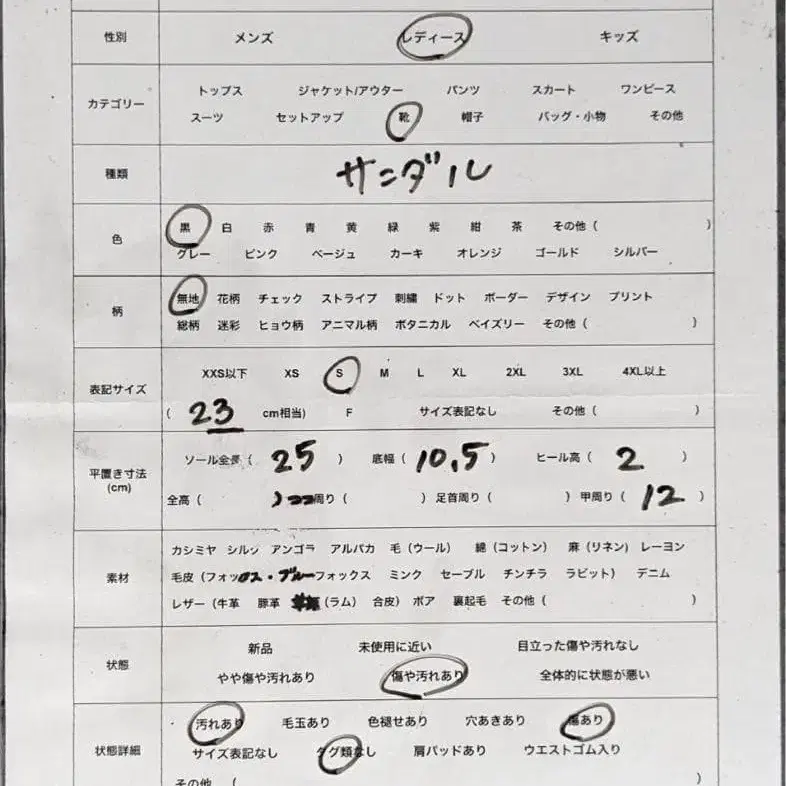 性別 メンズ レディース キッズ
カテゴリー
トップス ジャケット/アウター パンツ スカート ワンピース
スーツ セットアップ 靴 帽子 バッグ・小物 その他
種類 サンダル
色
黒 白 赤 青 黄 緑 紫 紺 茶 その他 ( )
グレー ピンク ベージュ カーキ オレンジ ゴールド シルバー
柄
無地 花柄 チェック ストライプ 刺繍 ドット ボーダー デザイン プリント
総柄 迷彩 ヒョウ柄 アニマル柄 ボタニカル ペイズリー その他 ( )
表記サイズ
XXS以下 XS S M L XL 2XL 3XL 4XL以上
( 23 cm相当) F サイズ表記なし その他 ( )
平置き寸法
(cm)
ソール全長 ( 25 ) 底幅 ( 10,5 ) ヒール高 ( 2 )
全高 ( ) 周り ( ) 足首周り ( ) 甲周り ( 12 )
素材
カシミヤ シルク アンゴラ アルパカ 毛 (ウール) 綿 (コットン) 麻 (リネン) レーヨン
毛皮 (フォックス・ブルーフォックス ミンク セーブル チンチラ ラビット) デニム
レザー (牛革 豚革 (ラム) 合皮) ボア 裏起毛 その他 ( )
状態
新品 未使用に近い 目立った傷や汚れなし
やや傷や汚れあり 傷や汚れあり 全体的に状態が悪い
状態詳細
汚れあり 毛玉あり 色褪せあり 穴あきあり 傷あり
サイズ表記なし タグ類なし 肩パッドあり ウエストゴム入り
その他 ( )